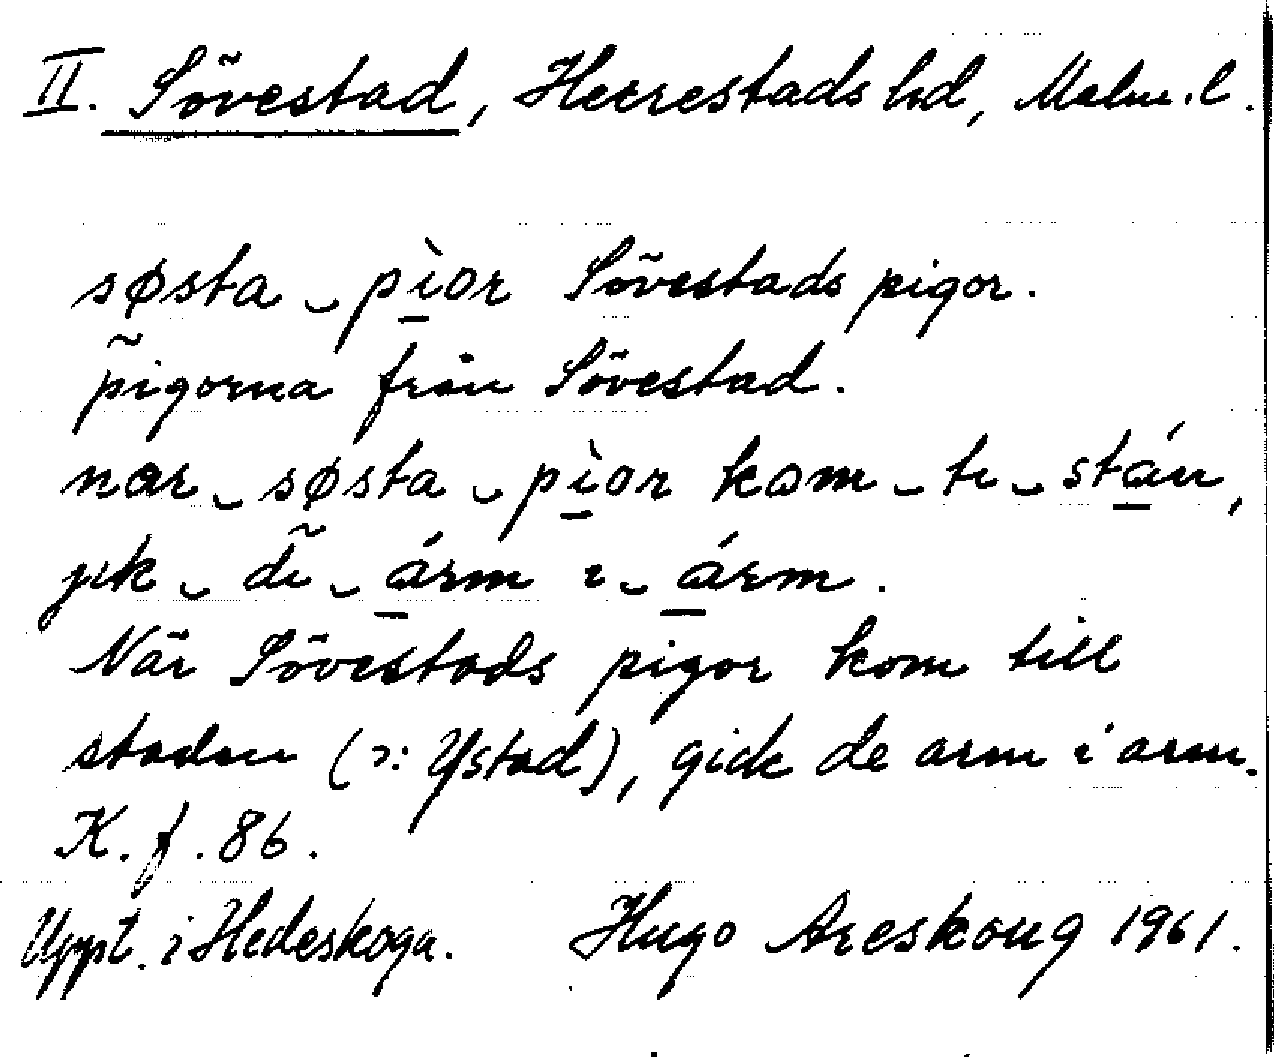 II. Sövestad, Herrestads hd, Malm. l.
søsta ‿ pìor Sövestads pigor.
pigorna från Sövestad.
nar ‿ søsta ‿ pìor kom ‿ te ‿ stán,
jik ‿ di ‿ árm i ‿ árm.
När Sövestads pigor kom till
staden (ɔ: Ystad), gick de arm i arm.
K. f. 86.
Uppt. i Hedeskoga. Hugo Areskoug 1961.